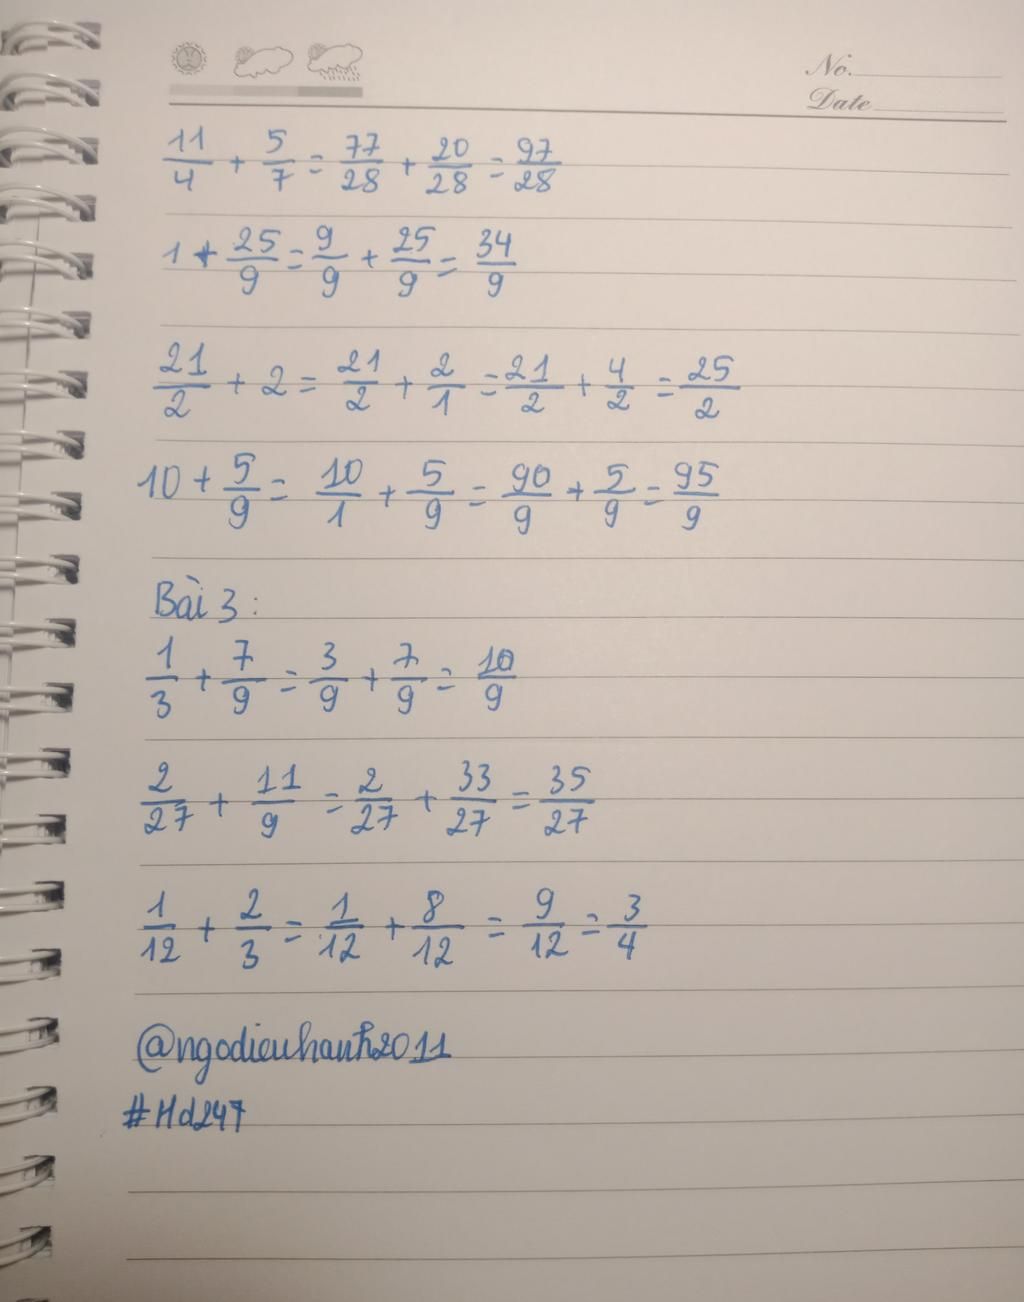 No.
Date
11/4 + 5/7 = 77/28 + 20/28 = 97/28
1 + 25/9 = 9/9 + 25/9 = 34/9
21/2 + 2 = 21/2 + 2/1 = 21/2 + 4/2 = 25/2
10 + 5/9 = 10/1 + 5/9 = 90/9 + 5/9 = 95/9
Bài 3 :
1/3 + 7/9 = 3/9 + 7/9 = 10/9
2/27 + 11/9 = 2/27 + 33/27 = 35/27
1/12 + 2/3 = 1/12 + 8/12 = 9/12 = 3/4
@ngodieuhanh2011
#Hd247